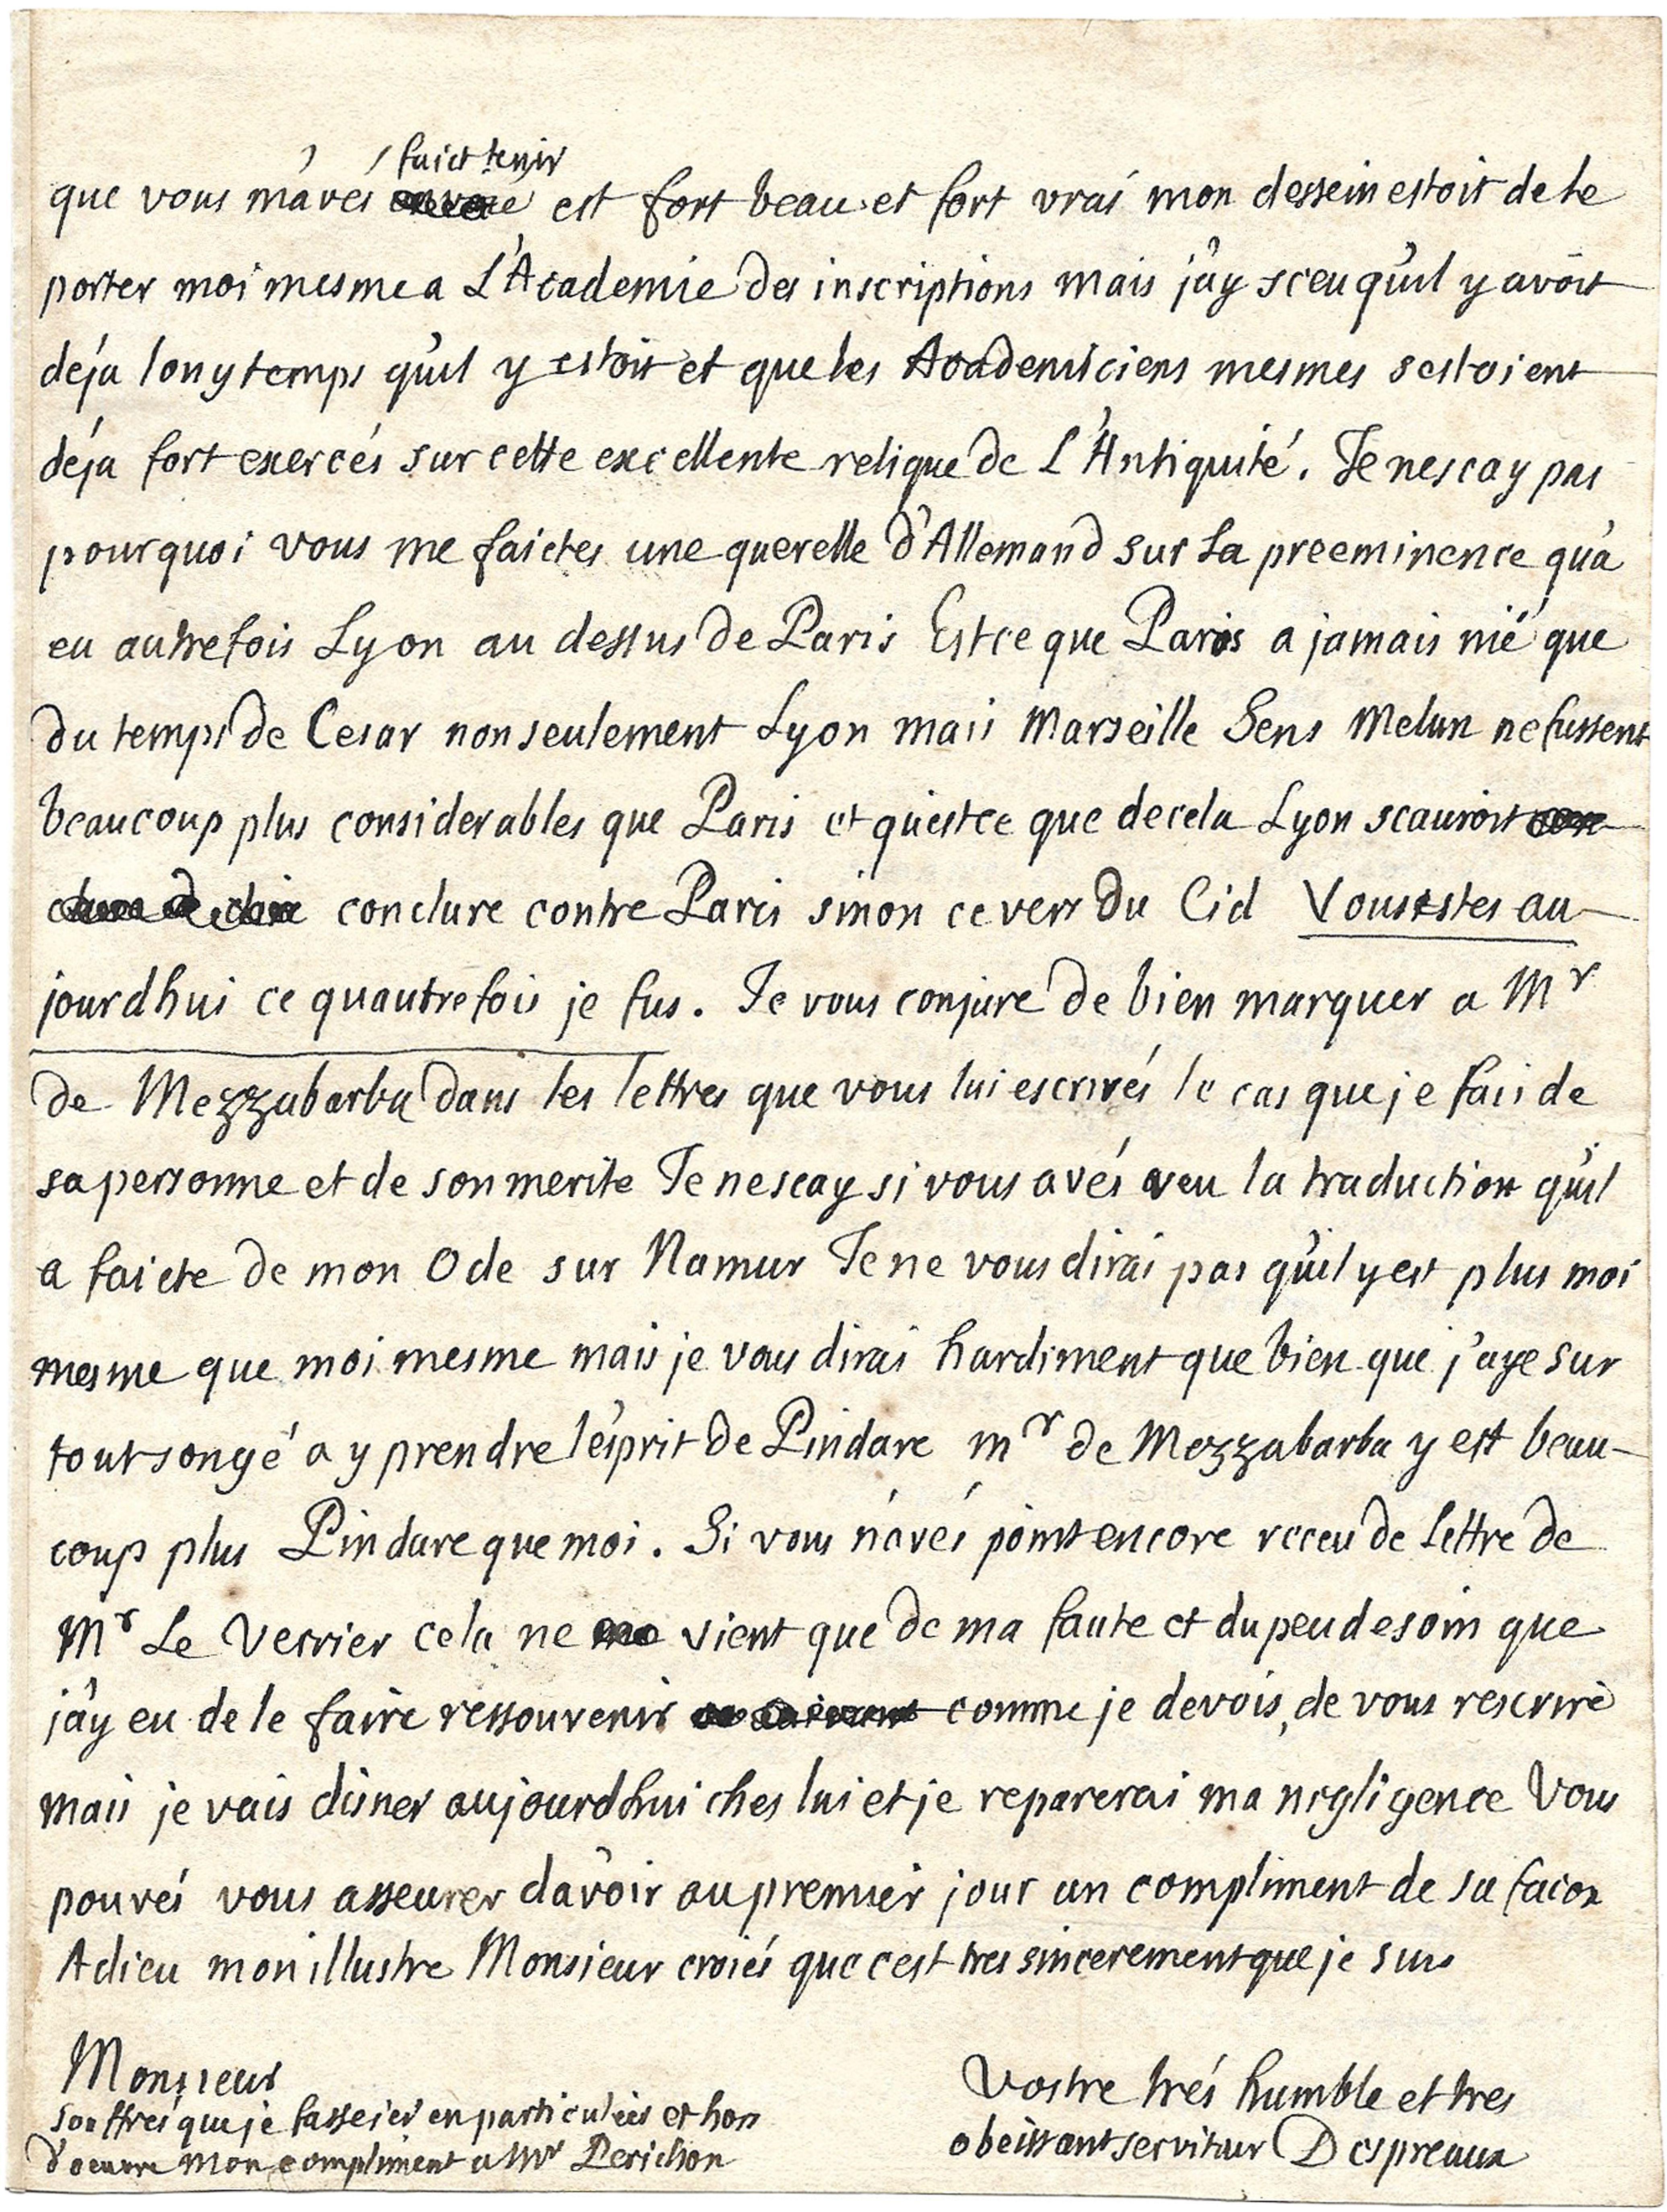 faict tenir
que vous m'avés est fort beau et fort vrai mon dessein estoit de le
porter moi mesme a L'Academie des inscriptions mais j'ay sceu qu'il y avoit
déja longtemps qu'il y estoit et que les Academiciens mesmes sestoient
déja fort exercés sur cette excellente relique de L'Antiquité. Je nescay pas
pourquoi vous me faictes une querelle d'Allemand sur La preeminence qu'a
eu autrefois Lyon au dessus de Paris Estce que Paris a jamais nié que
du temps de Cesar non seulement Lyon mais Marseille Sens Melun ne fussent
beaucoup plus considerables que Paris et qu'estce que decela Lyon scauroit
conclure contre Paris sinon ce vers du Cid Vous estes au-
jourdhui ce quautrefois je fus. Je vous conjure de bien marquer a Mr
de Mezzabarba dans les lettres que vous lui escrivés le cas que je fais de
sa personne et de son merite Je nescay si vous avés veu la traduction qu'il
a faicte de mon Ode sur Namur Je ne vous dirai pas qu'il y est plus moi
mesme que moi mesme mais je vous dirai hardiment que bien que j'aye sur
tout songé a y prendre l'esprit de Pindare mr de Mezzabarba y est beau-
coup plus Pindare que moi. Si vous n'avés point encore receu de Lettre de
Mr Le Verrier cela ne vient que de ma faute et du peu de soin que
j'ay eu de le faire ressouvenir comme je devois, de vous rescrire
mais je vais disner aujourdhui ches lui et je reparerai ma negligence Vous
pouvés vous asseurer d'avoir au premier jour un compliment de sa facon
Adieu mon illustre Monsieur croiés que cest tres sincerement que je suis
Monsieur
souffrés que je fasse ici en particulier et hors
d'oeuvre mon compliment a Mr Perichon
Vostre trés humble et tres
obeissant serviteur Despreaux